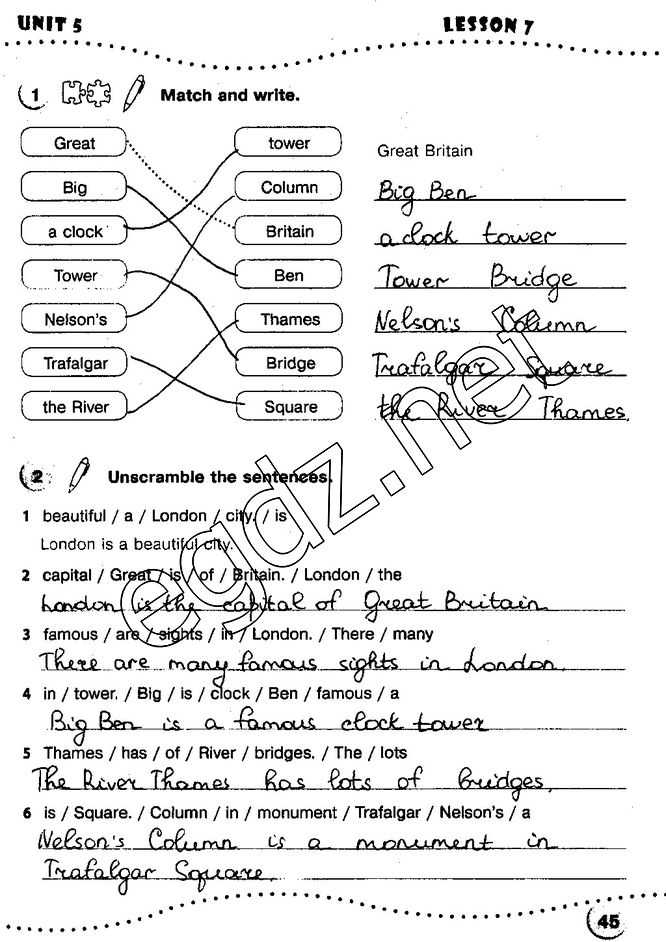 UNIT 5
LESSON 7
1 Match and write.
Great tower
Great Britain
Big Column
Big Ben
a clock Britain
a clock tower
Tower Ben
Tower Bridge
Nelson's Thames
Nelson's Column
Trafalgar Bridge
Trafalgar Square
the River Square
the River Thames.
2 Unscramble the sentences.
1 beautiful / a / London / city. / is
London is a beautiful city.
2 capital / Great / is / of / Britain. / London / the
London is the capital of Great Britain
3 famous / are / sights / in / London. / There / many
There are many famous sights in London.
4 in / tower. / Big / is / clock / Ben / famous / a
Big Ben is a famous clock tower
5 Thames / has / of / River / bridges. / The / lots
The River Thames has lots of bridges.
6 is / Square. / Column / in / monument / Trafalgar / Nelson's / a
Nelson's Column is a monument in
Trafalgar Square.
45
egdz.net